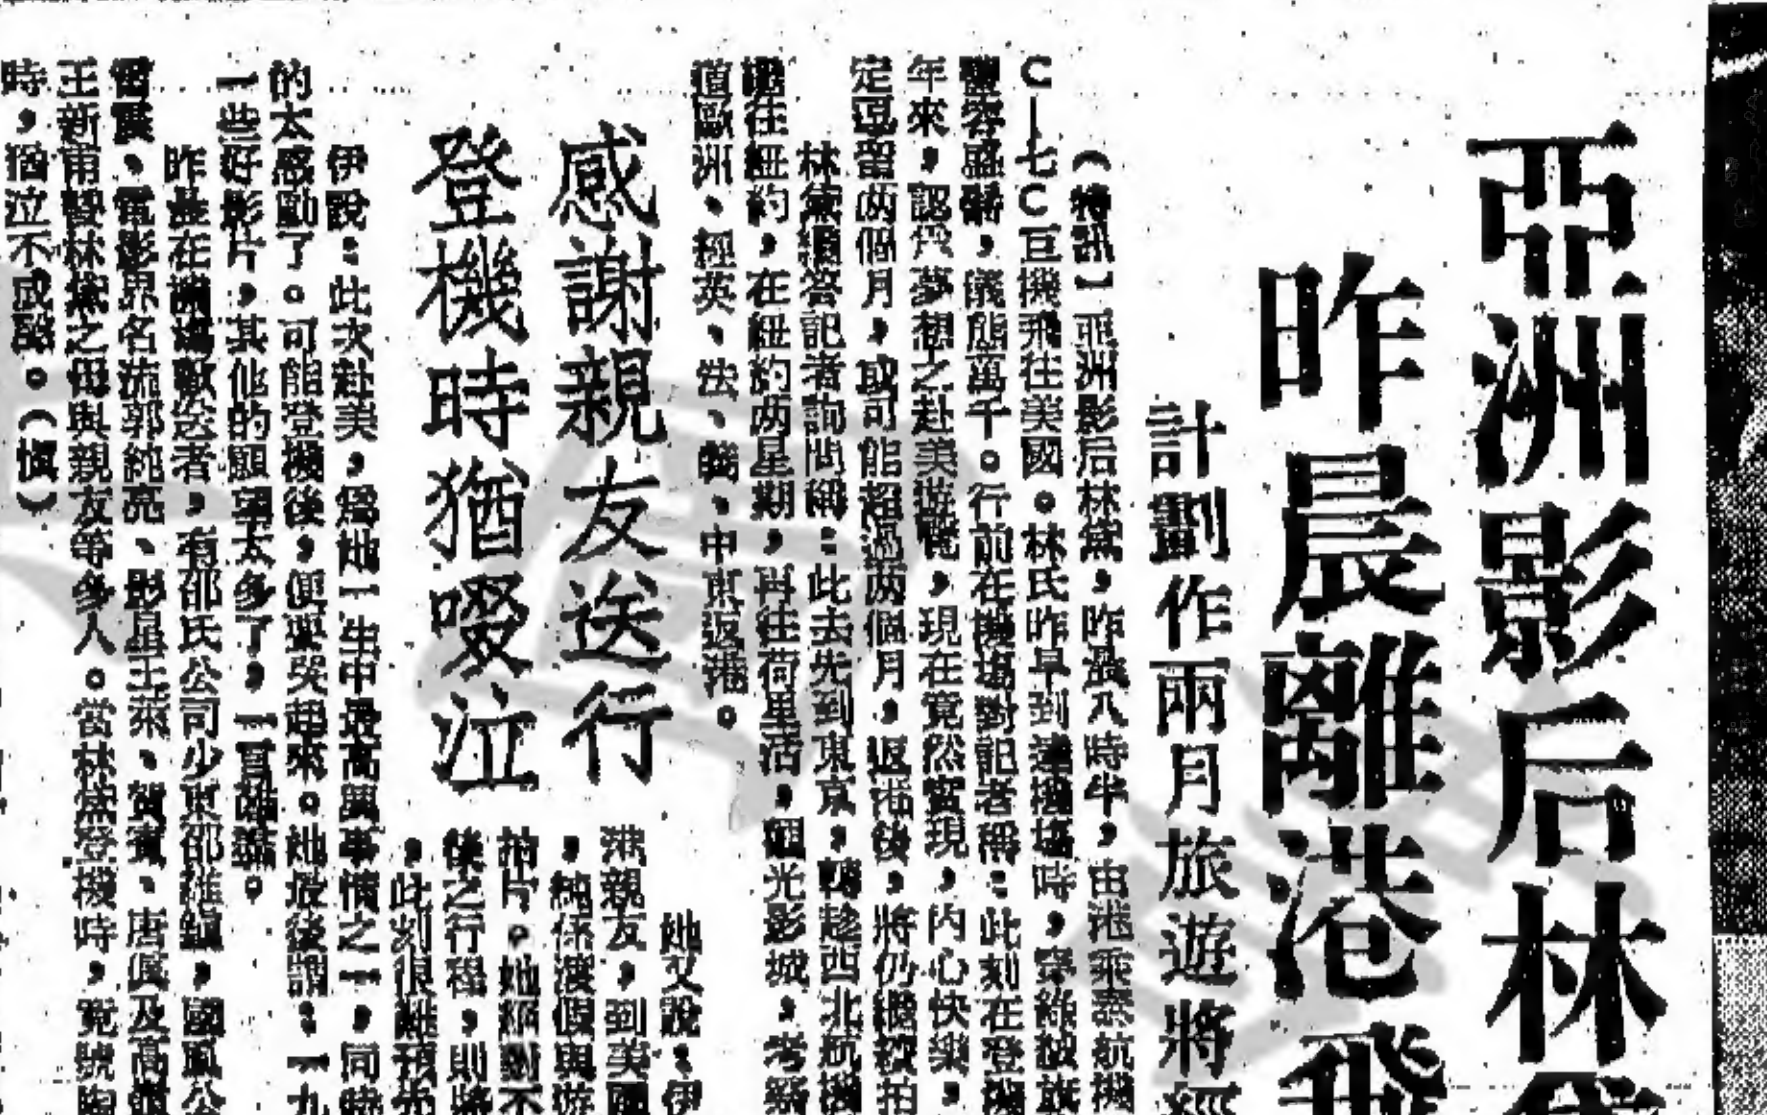 亞洲影后林
昨晨離港飛
計劃作兩月旅遊將經
（特訊）亞洲影后林黛，昨晨八時半，由港乘泰航機
C—七C巨機飛往美國。林氏昨早到達機場時，穿綠絨旗
容盛，儀態萬千。行前在機場對記者稱：此刻在登機
年來，認為夢想之赴美遊覽，現在竟然實現，內心快樂，
定逗留两個月，或可能超過两個月，返港後，將仍繼續拍
林黛續答記者詢問稱：此去先到東京，轉趁西北航機
往紐約，在紐約两星期，再往荷里活，個光影城，考察
道歐洲、經英、法、義、中東返港。
感謝親友送行
登機時猶啜泣
她又說：伊
港親友，到美國
，純係渡假與遊
拍片。她絕對不
後之行程，則將
，此刻很難預先
伊說：此次赴美，為她一生中最高興事情之一，同時
的太感動了。可能登機後，便要哭起來。她最後謂：一九
一些好影片，其他的願望太多了，一言難盡。
昨晨在機場歡送者，有邵氏公司少東邵維鍈，國風公
、電影界名流郭純亮、影星王萊、賀賓、唐真及高
王新甫暨林黛之母與親友等多人。當林黛登機時，竟號陶
時，猶泣不成聲。（慎）